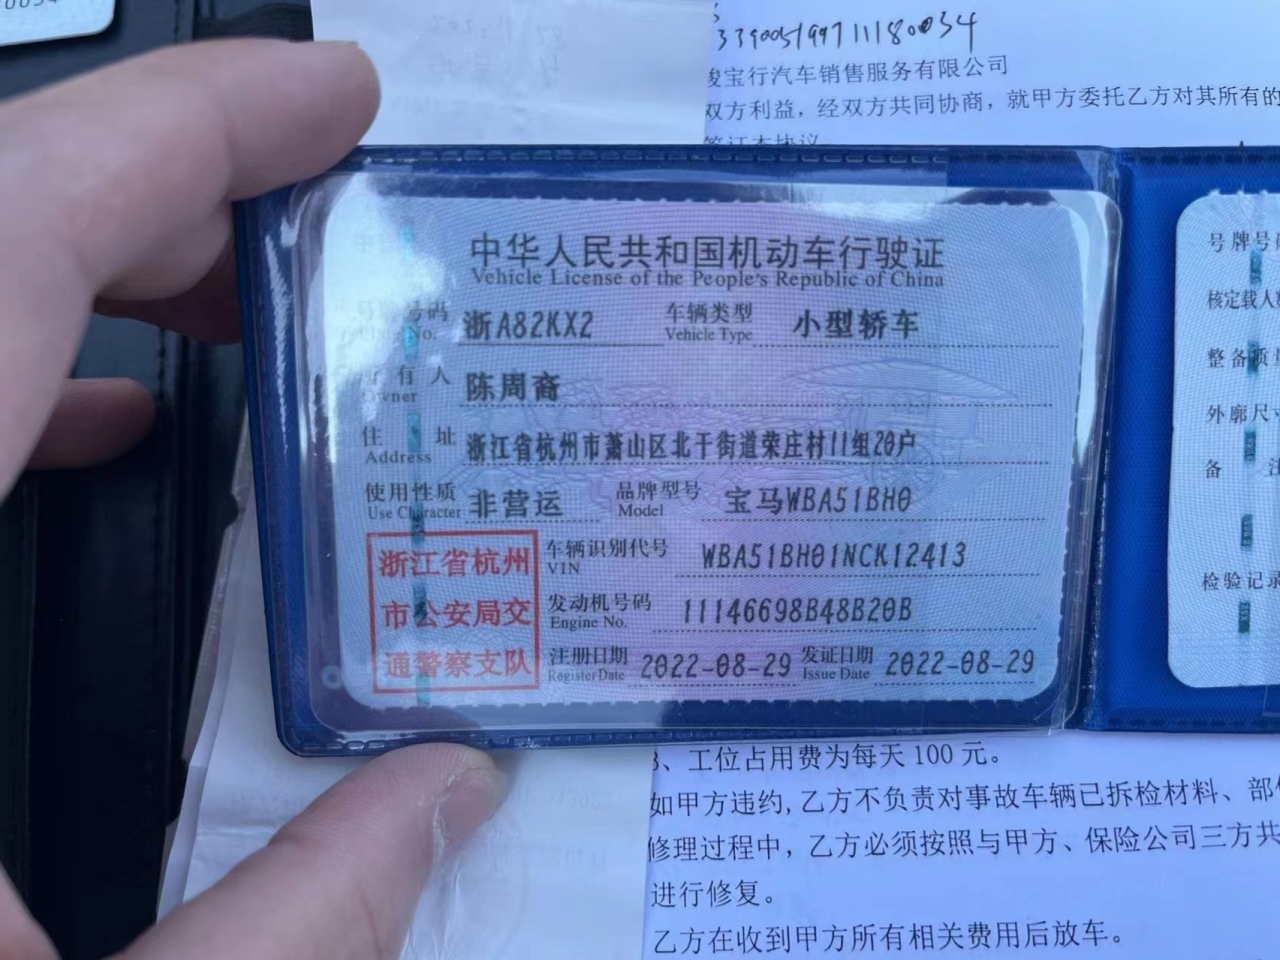 339005199711180034
骏宝行汽车销售服务有限公司
双方利益，经双方共同协商，就甲方委托乙方对其所有的
签订本协议
中华人民共和国机动车行驶证
Vehicle License of the People's Republic of China
号牌号码 浙A82KX2 车辆类型 小型轿车
Plate No. Vehicle Type
所有人 陈周裔
Owner
住址 浙江省杭州市萧山区北干街道荣庄村11组20户
Address
使用性质 非营运 品牌型号 宝马WBA51BH0
Use Character Model
浙江省杭州
市公安局交
通警察支队
车辆识别代号 WBA51BH01NCK12413
VIN
发动机号码 11146698B48B20B
Engine No.
注册日期 2022-08-29 发证日期 2022-08-29
Register Date Issue Date
号牌号
核定载人
整备质量
外廓尺寸
备注
检验记录
3、工位占用费为每天100元。
如甲方违约,乙方不负责对事故车辆已拆检材料、部
修理过程中，乙方必须按照与甲方、保险公司三方共
进行修复。
乙方在收到甲方所有相关费用后放车。